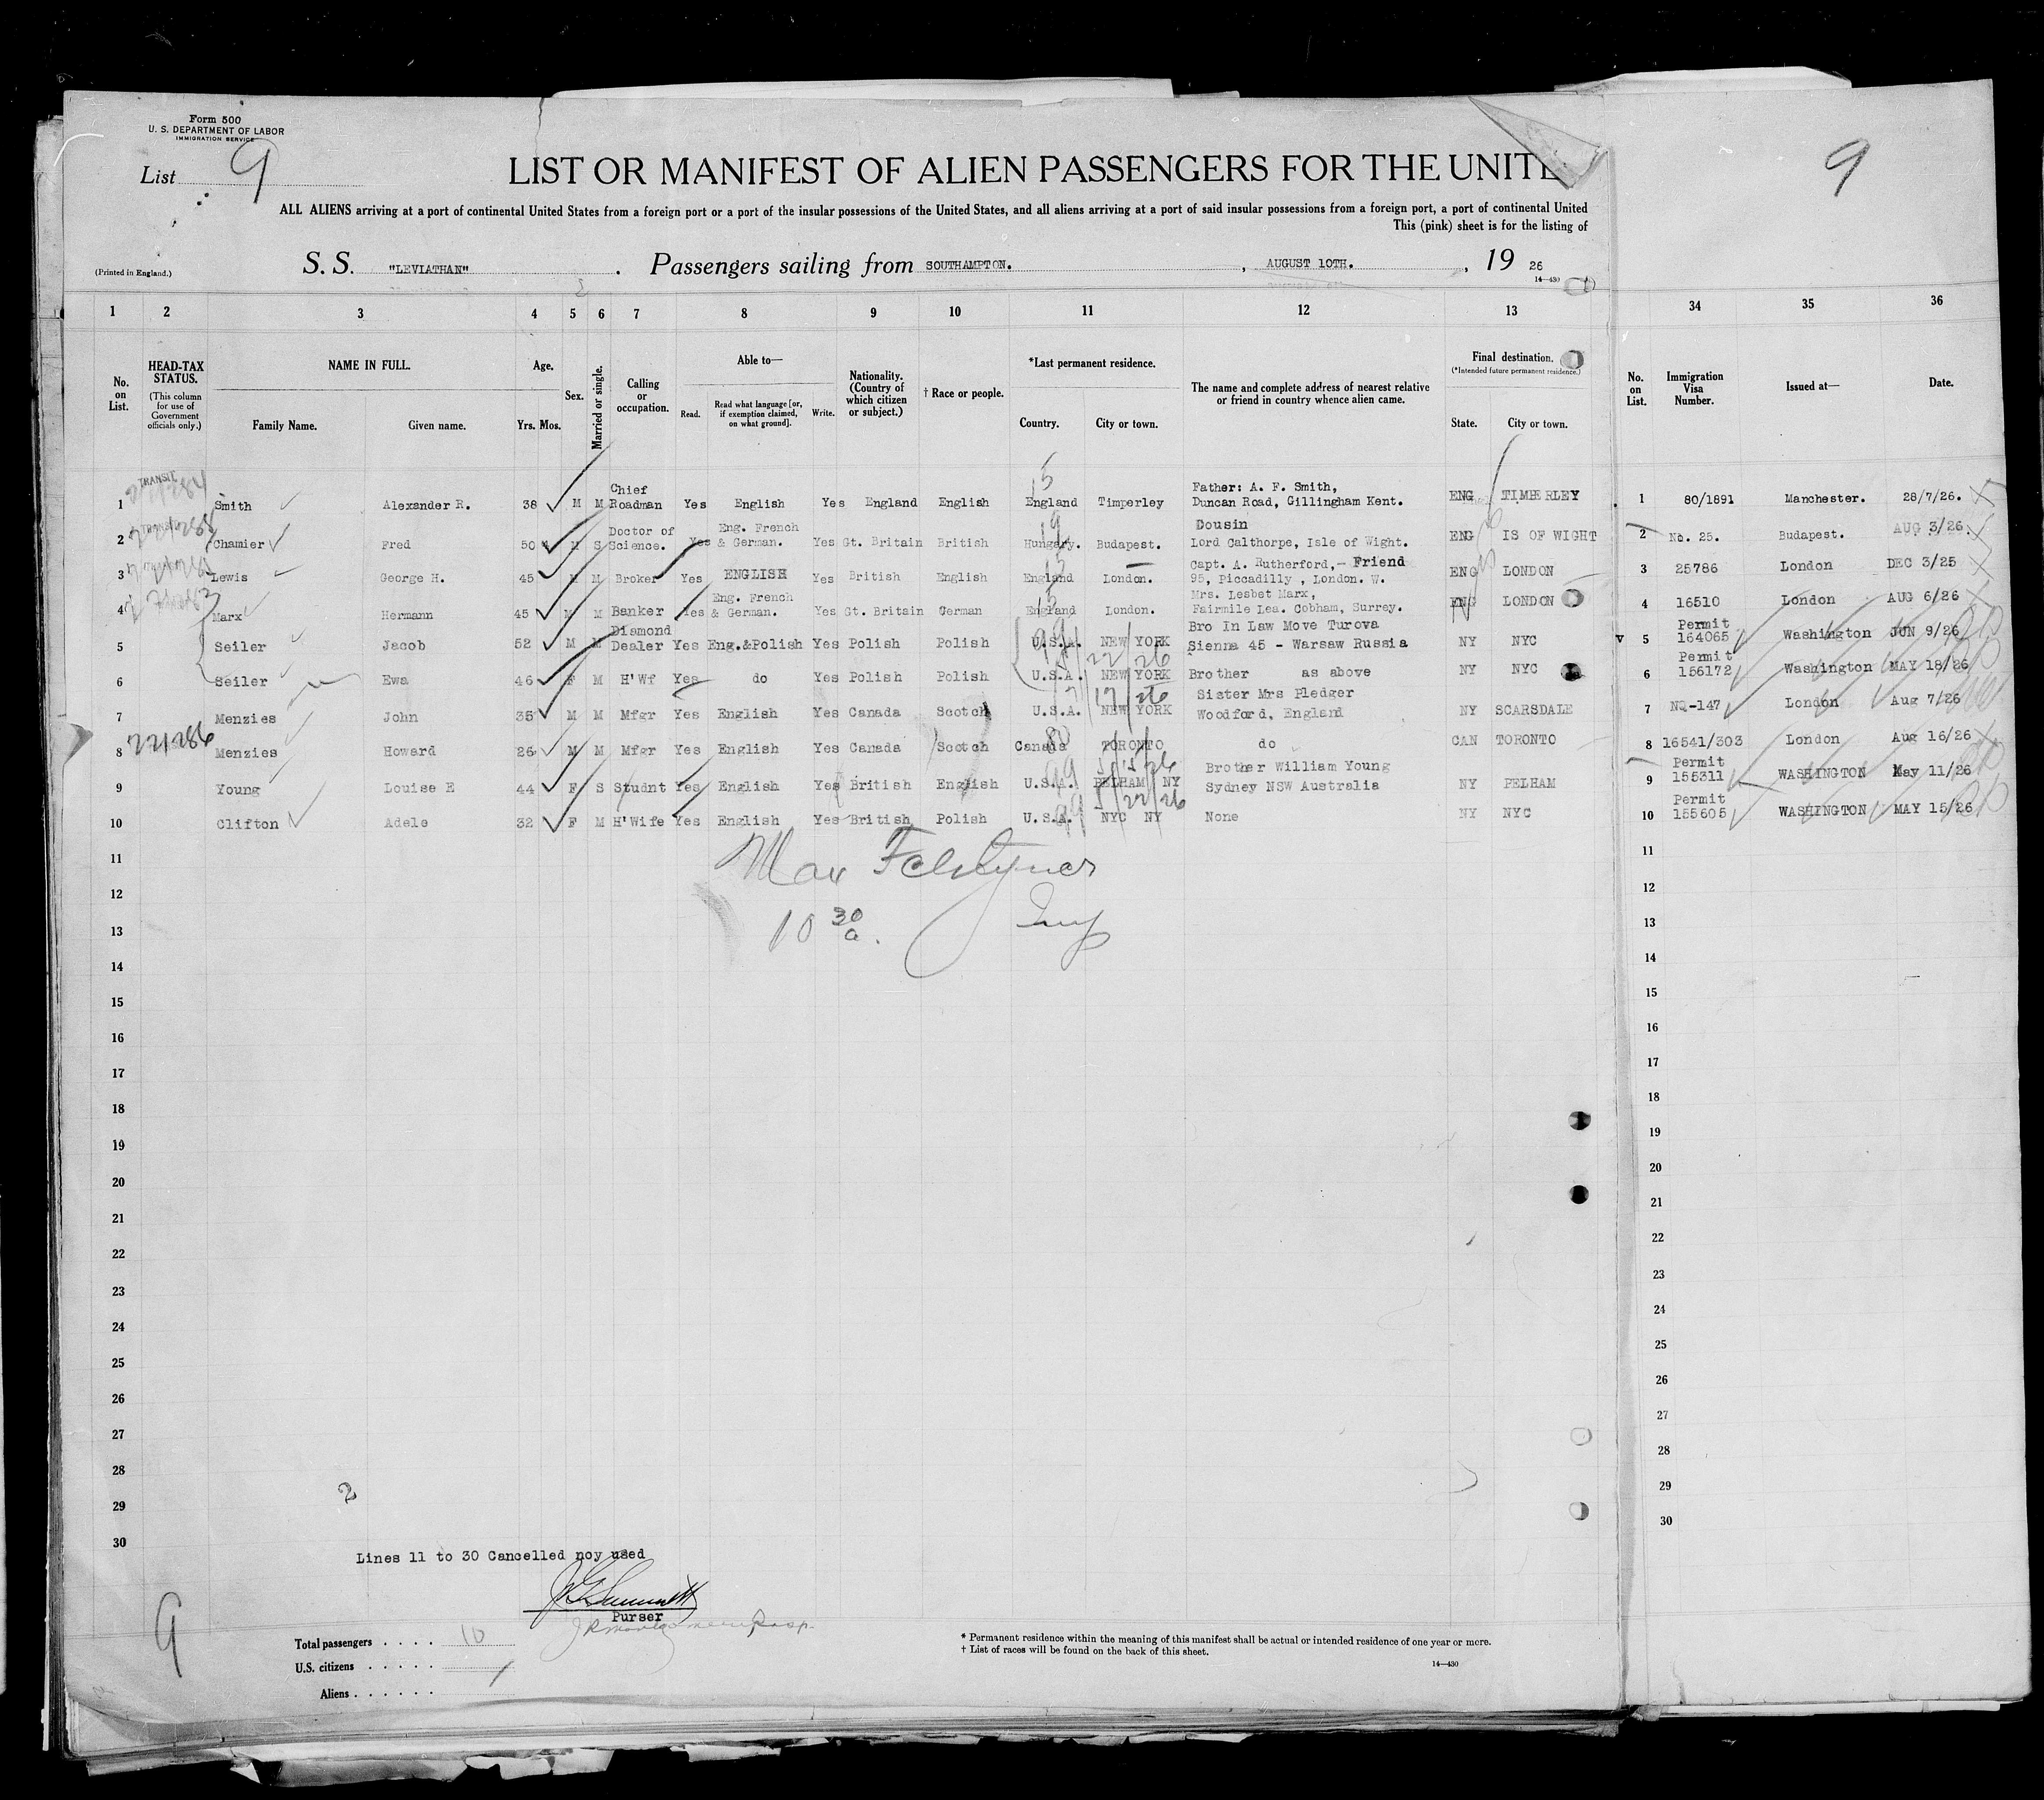 Form 500
U. S. DEPARTMENT OF LABOR
IMMIGRATION SERVICE
List 9
9
LIST OR MANIFEST OF ALIEN PASSENGERS FOR THE UNITE
ALL ALIENS arriving at a port of continental United States from a foreign port or a port of the insular possessions of the United States, and all aliens arriving at a port of said insular possessions from a foreign port, a port of continental United
This (pink) sheet is for the listing of
(Printed in England.)
S. S. "LEVIATHAN" . Passengers sailing from SOUTHAMPTON. , AUGUST 10TH. , 19 26
14—430
1 2 3 4 5 6 7 8 9 10 11 12 13 34 35 36
No. on List.
HEAD-TAX STATUS.
(This column for use of Government officials only.)
NAME IN FULL.
Family Name. Given name.
Age.
Yrs. Mos.
Sex.
Married or single.
Calling or occupation.
Able to—
Read. Read what language [or, if exemption claimed, on what ground]. Write.
Nationality. (Country of which citizen or subject.)
† Race or people.
*Last permanent residence.
Country. City or town.
The name and complete address of nearest relative or friend in country whence alien came.
Final destination.
(*Intended future permanent residence.)
State. City or town.
No. on List.
Immigration Visa Number.
Issued at—
Date.
TRANSIT
1 Smith Alexander R. 38 M M Chief Roadman Yes English Yes England English England Timperley Father: A. F. Smith, Duncan Road, Gillingham Kent. ENG TIMBERLEY 1 80/1891 Manchester. 28/7/26.
2 Chamier Fred 50 M S Doctor of Science. Yes Eng. French & German. Yes Gt. Britain British Hungary. Budapest. Dousin Lord Calthorpe, Isle of Wight. ENG IS OF WIGHT 2 No. 25. Budapest. AUG 3/26.
3 Lewis George H. 45 M M Broker Yes ENGLISH Yes British English England London. Capt. A. Rutherford,- Friend 95, Piccadilly , London. W. ENG LONDON 3 25786 London DEC 3/25
4 Marx Hermann 45 M M Banker Yes Eng. French & German. Yes Gt. Britain German England London. Mrs. Lesbet Marx, Fairmile Lea. Cobham, Surrey. ENG LONDON 4 16510 London AUG 6/26
5 Seiler Jacob 52 M M Diamond Dealer Yes Eng.&Polish Yes Polish Polish U.S.A. NEW YORK Bro In Law Move Turova Sienna 45 - Warsaw Russia NY NYC V 5 Permit 164065 Washington JUN 9/26
6 Seiler Ewa 46 F M H'Wf Yes do Yes Polish Polish U.S.A. NEW YORK Brother as above NY NYC 6 Permit 156172 Washington MAY 18/26
7 Menzies John 35 M M Mfgr Yes English Yes Canada Scotch U.S.A. NEW YORK Sister Mrs Pledger Woodford, England NY SCARSDALE 7 NQ-147 London Aug 7/26
8 Menzies Howard 26 M M Mfgr Yes English Yes Canada Scotch Canada TORONTO do CAN TORONTO 8 16541/303 London Aug 16/26
9 Young Louise E 44 F S Studnt Yes English Yes British English U.S.A. PELHAM NY Brother William Young Sydney NSW Australia NY PELHAM 9 Permit 155311 WASHINGTON May 11/26
10 Clifton Adele 32 F M H'Wife Yes English Yes British Polish U.S.A. NYC NY None NY NYC 10 Permit 155605 WASHINGTON MAY 15/26
11 11
Max
12 12
10 30 a.
13 13
14 14
15 15
16 16
17 17
18 18
19 19
20 20
21 21
22 22
23 23
24 24
25 25
26 26
27 27
28 28
29 29
2
30 30
Lines 11 to 30 Cancelled noy used
Purser
9
Total passengers . . . . 10
U.S. citizens . . . . .
Aliens . . . . . .
* Permanent residence within the meaning of this manifest shall be actual or intended residence of one year or more.
† List of races will be found on the back of this sheet.
14—430